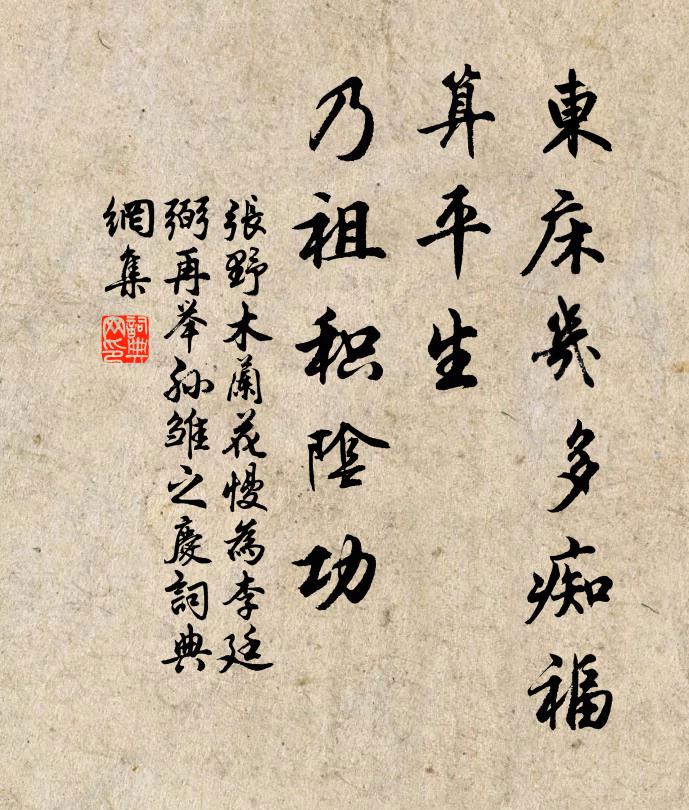 東床幾多痴福
算平生
乃祖积陰功
張野木蘭花慢為李廷
弼再举孙雏之慶詞典
網集
詞典
网印